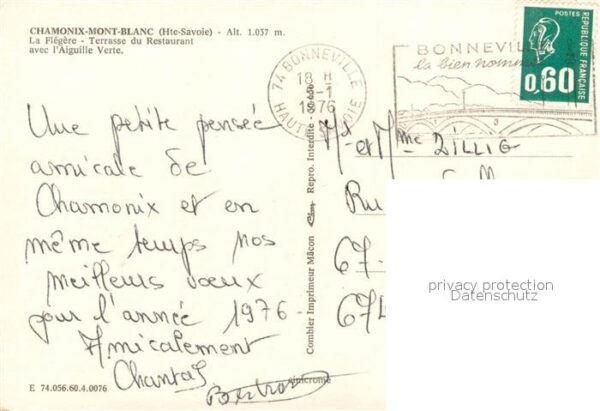 CHAMONIX-MONT-BLANC (Hte-Savoie) - Alt. 1.037 m.
La Flégère - Terrasse du Restaurant
avec l'Aiguille Verte.
74 BONNEVILLE
18 H
1976
HAUTE
BONNEVILLE
la bien nommée
POSTES
REPUBLIQUE FRANÇAISE
0,60
Une petite pensée
amicale de
Chamonix et en
même temps nos
meilleurs vœux
pour l'année 1976-
Amicalement
Chantal
Bertrand
Combier Imprimeur Mâcon Cim Repro. Interdite
Mr et Mme ZILLIG
Ru
67-
674
privacy protection
Datenschutz
E 74.056.60.4.0076